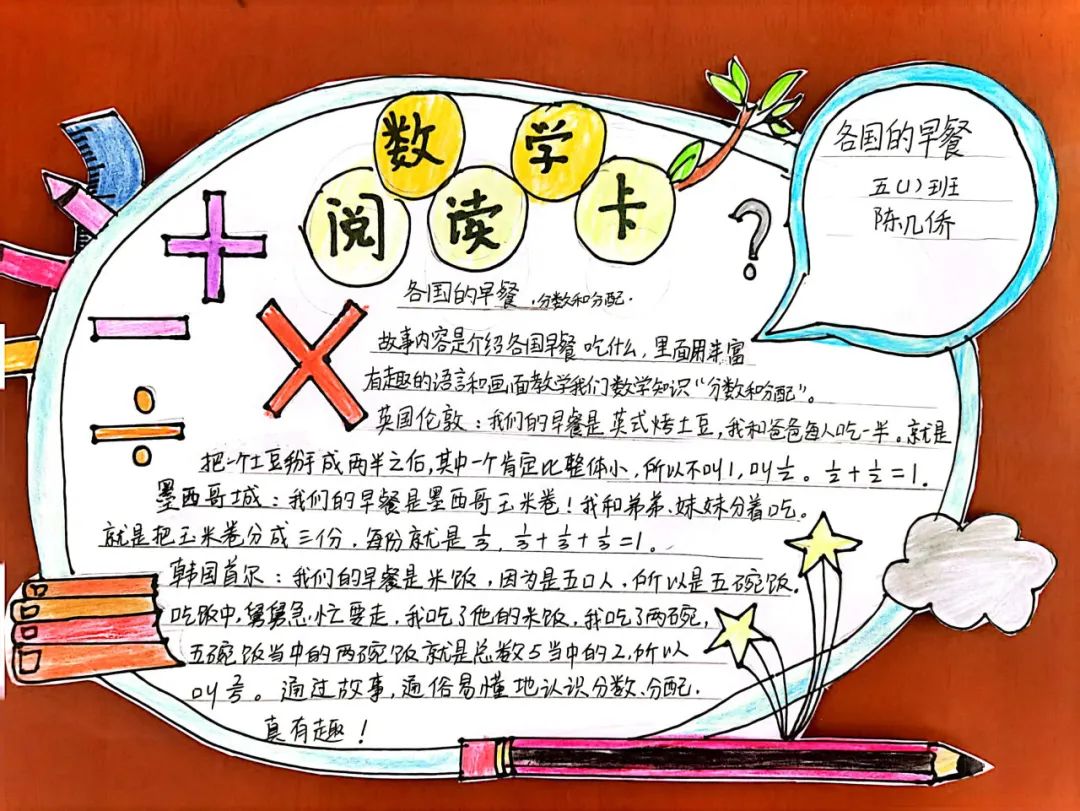 数学
阅读卡
各国的早餐
五(1)班
陈几侨
各国的早餐.分数和分配.
故事内容是介绍各国早餐吃什么,里面用丰富
有趣的语言和画面教学我们数学知识“分数和分配”。
英国伦敦:我们的早餐是英式烤土豆,我和爸爸每人吃一半。就是
把一个土豆掰成两半之后,其中一个肯定比整体小,所以不叫1,叫½。½+½=1.
墨西哥城:我们的早餐是墨西哥玉米卷!我和弟弟、妹妹分着吃。
就是把玉米卷分成三份,每份就是⅓,⅓+⅓+⅓=1。
韩国首尔:我们的早餐是米饭,因为是五口人,所以是五碗饭。
吃饭中,舅舅急忙要走,我吃了他的米饭,我吃了两碗,
五碗饭当中的两碗饭就是总数5当中的2,所以
叫⅖。通过故事,通俗易懂地认识分数、分配.
真有趣!